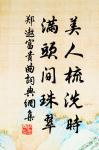 美人梳洗時
滿頭間珠翠
鄭遨富貴曲詞典網集